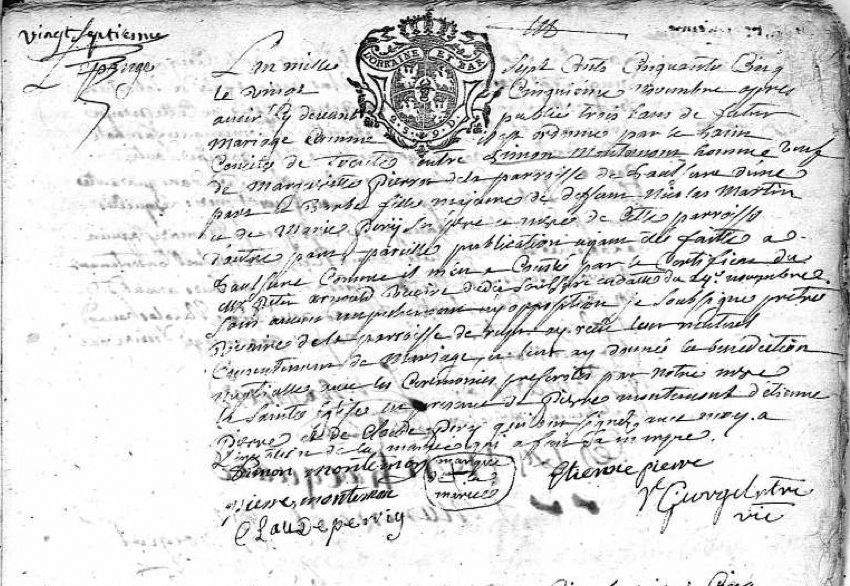 vingt Septieme
L'an mille Sept Cents Cinquante Cinq
LORRAINE ET BAR
le vingt Cinquieme novembre apres
avoir cy devant publié trois bans de futur
mariage Comme est ordonne par le Saint
Concile de trente entre Simon Montemont homme veuf
de Marguerite Pierre de la parroisse de Saulsure d'une
part et Barbe fille majeure de deffunt Nicolas Martin
et de Marie Pery Ses pere et mere de Cette parroisse
d'autre part pareille publication ayant été faitte a
Saulsure Comme il m'en a Consté par le Certificat du
Sr arnould Vicaire dudit Saulsure en datte du 24e novembre
Sans aucun empechement ny opposition je Soubsigne prêtre
Vicaire de la parroisse de ay receu leur mutuel
Consentement de Mariage et leur ay donnée la benediction
nuptialle avec les Ceremonies prescrites par notre mere
la Sainte Eglise en presence de Pierre montemont d'étienne
Pierre et de Claude Pery qui ont signez avec moy a
de la mariee qui a fait sa marque.
Simon montemon
marque de la mariée
Etienne pierre
pierre montemon
Claude perriy
vic